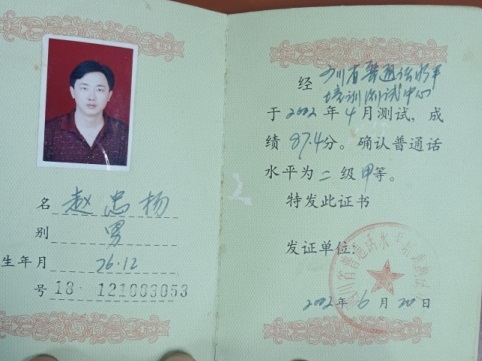 名 赵忠杨
别 男
生年月 76.12
号 18-121003053
经 川省普通话水平
培训测试中心
于2002年4月测试，成
绩87.4分。确认普通话
水平为二级甲等。
特发此证书
发证单位：
2002年6月20日